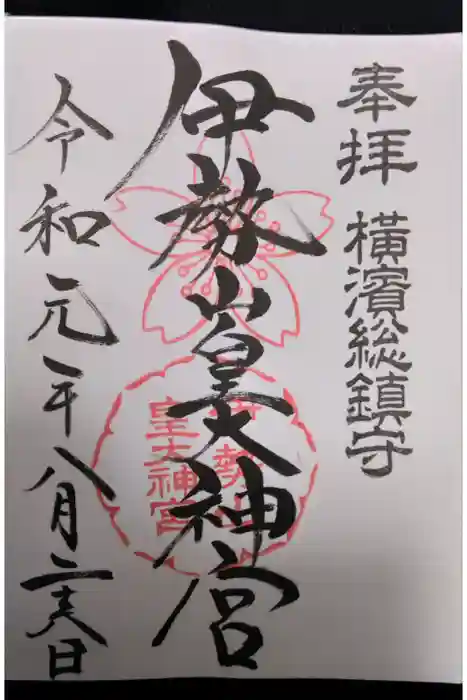 奉拝 横濱総鎮守
伊勢山皇大神宮
令和元年八月二十八日
伊勢山
皇大神宮